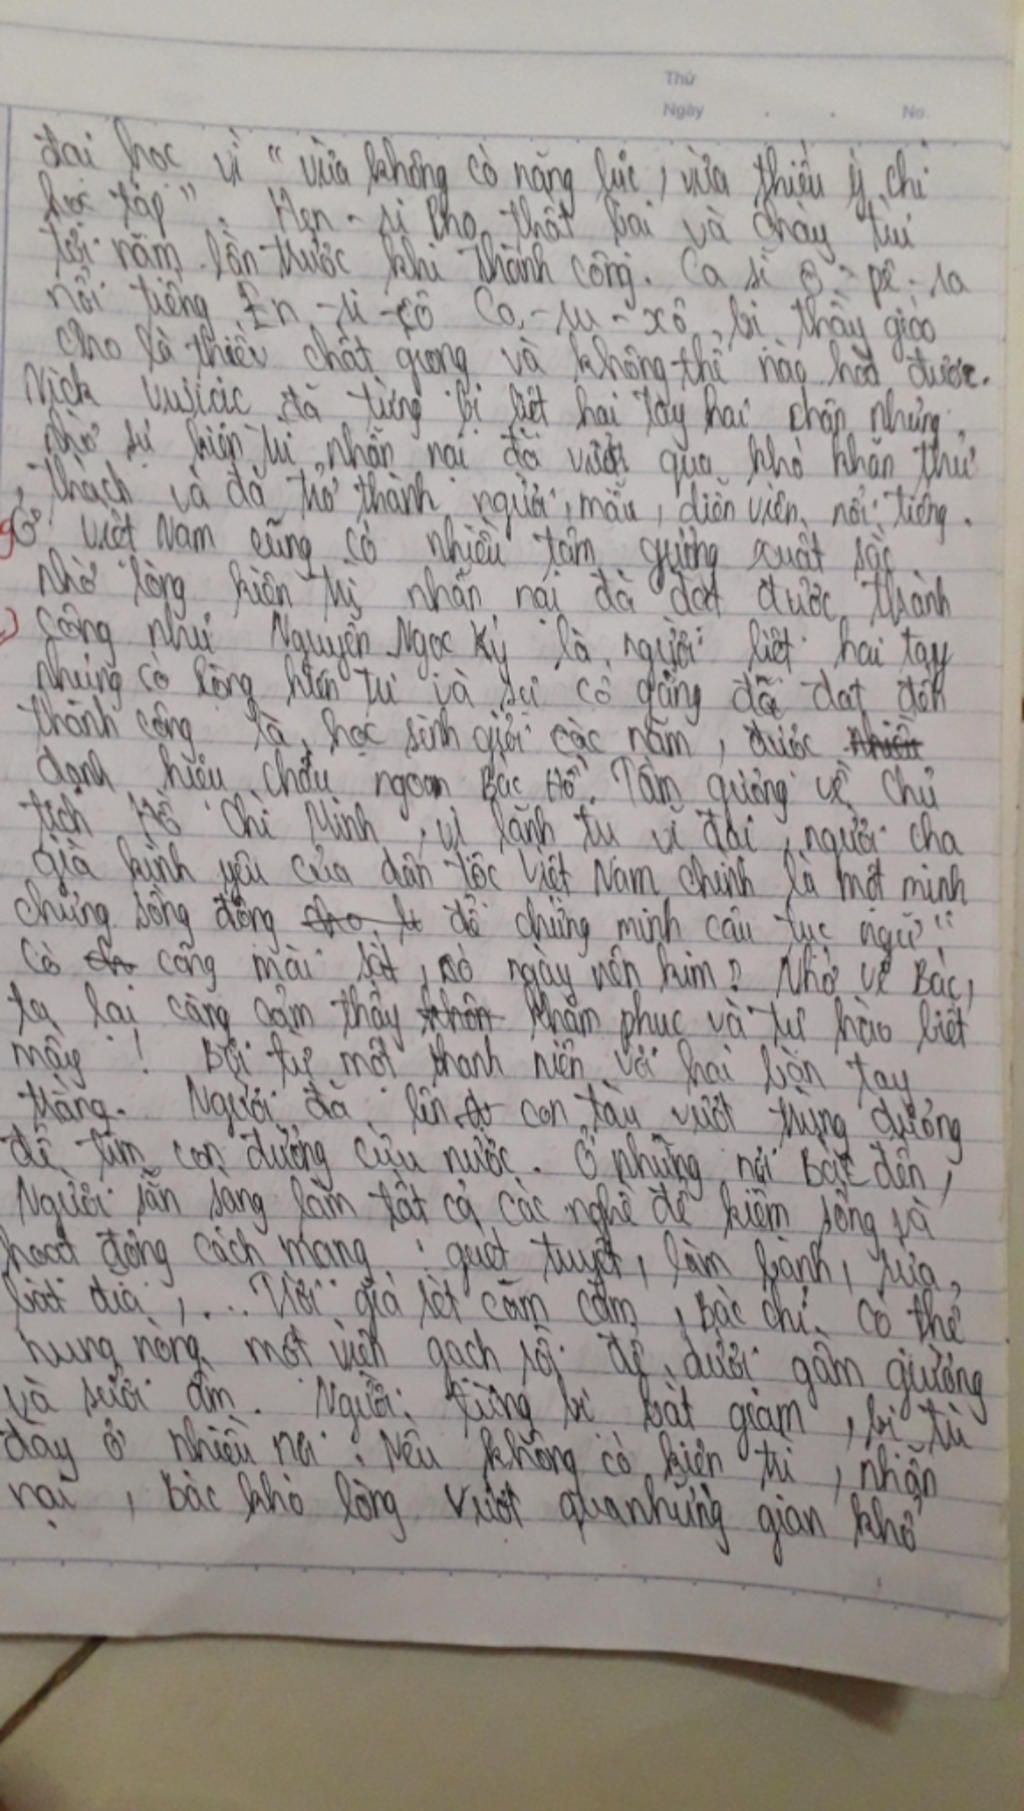 Thứ
Ngày . . No.
đại học vì "vừa không có năng lực, vừa thiếu ý chí
học tập". Hen-ri Pho thất bại và cháy túi
tới năm lần trước khi thành công. Ca sĩ ô-pê-ra
nổi tiếng En-ri-cô Ca-ru-xô bị thầy giáo
cho là thiếu chất giọng và không thể nào hát được.
Nick Vujicic đã từng bị liệt hai tay hai chân nhưng
nhờ sự kiên trì, nhẫn nại đã vượt qua khó khăn thử
thách và đã trở thành người mẫu, diễn viên nổi tiếng.
Ở Việt Nam cũng có nhiều tấm gương xuất sắc
nhờ lòng kiên trì nhẫn nại đã đạt được thành
công như Nguyễn Ngọc Ký là người liệt hai tay
nhưng có lòng kiên trì và sự cố gắng đã đạt đến
thành công là học sinh giỏi các năm, được nhiều
danh hiệu cháu ngoan Bác Hồ. Tấm gương về Chủ
tịch Hồ Chí Minh, vị lãnh tụ vĩ đại, người cha
già kính yêu của dân tộc Việt Nam chính là một minh
chứng sống động để chứng minh câu tục ngữ "
Có công mài sắt, có ngày nên kim? Nhớ về Bác,
ta lại càng cảm thấy khâm phục và tự hào biết
mấy ! Bởi từ một thanh niên với hai bàn tay
trắng. Người đã lên con tàu vượt trùng dương
để tìm con đường cứu nước. Ở những nơi Bác đến,
Người sẵn sàng làm tất cả các nghề để kiếm sống và
hoạt động cách mạng : quét tuyết, làm bánh, rửa
bát đĩa, ... Với giá rét căm căm, Bác chỉ có thể
hung nóng một viên gạch rồi để dưới gầm giường
và sưởi ấm. Người từng bị bắt giam, bị tù
đày ở nhiều nơi. Nếu không có kiên trì, nhẫn
nại, Bác khó lòng vượt qua những gian khổ